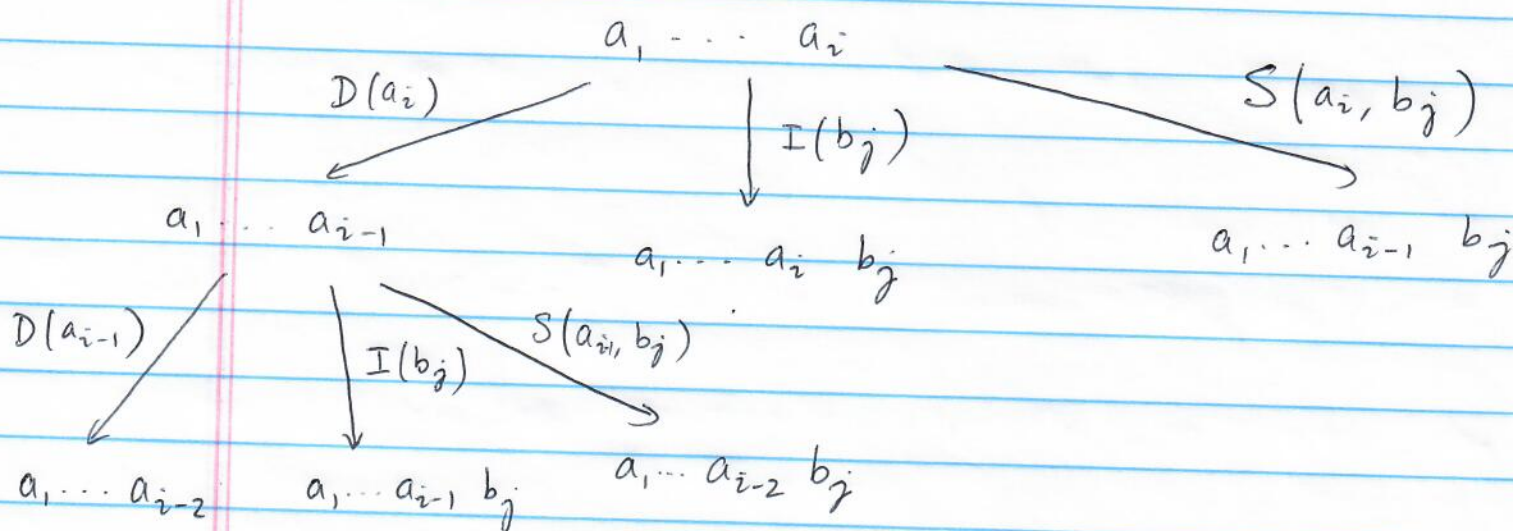 a₁ - - - aᵢ
D(aᵢ) I(bⱼ) S(aᵢ, bⱼ)
a₁ ... aᵢ₋₁ a₁ ... aᵢ bⱼ a₁ ... aᵢ₋₁ bⱼ
D(aᵢ₋₁) I(bⱼ) S(aᵢ₋₁, bⱼ)
a₁ ... aᵢ₋₂ a₁ ... aᵢ₋₁ bⱼ a₁ ... aᵢ₋₂ bⱼ